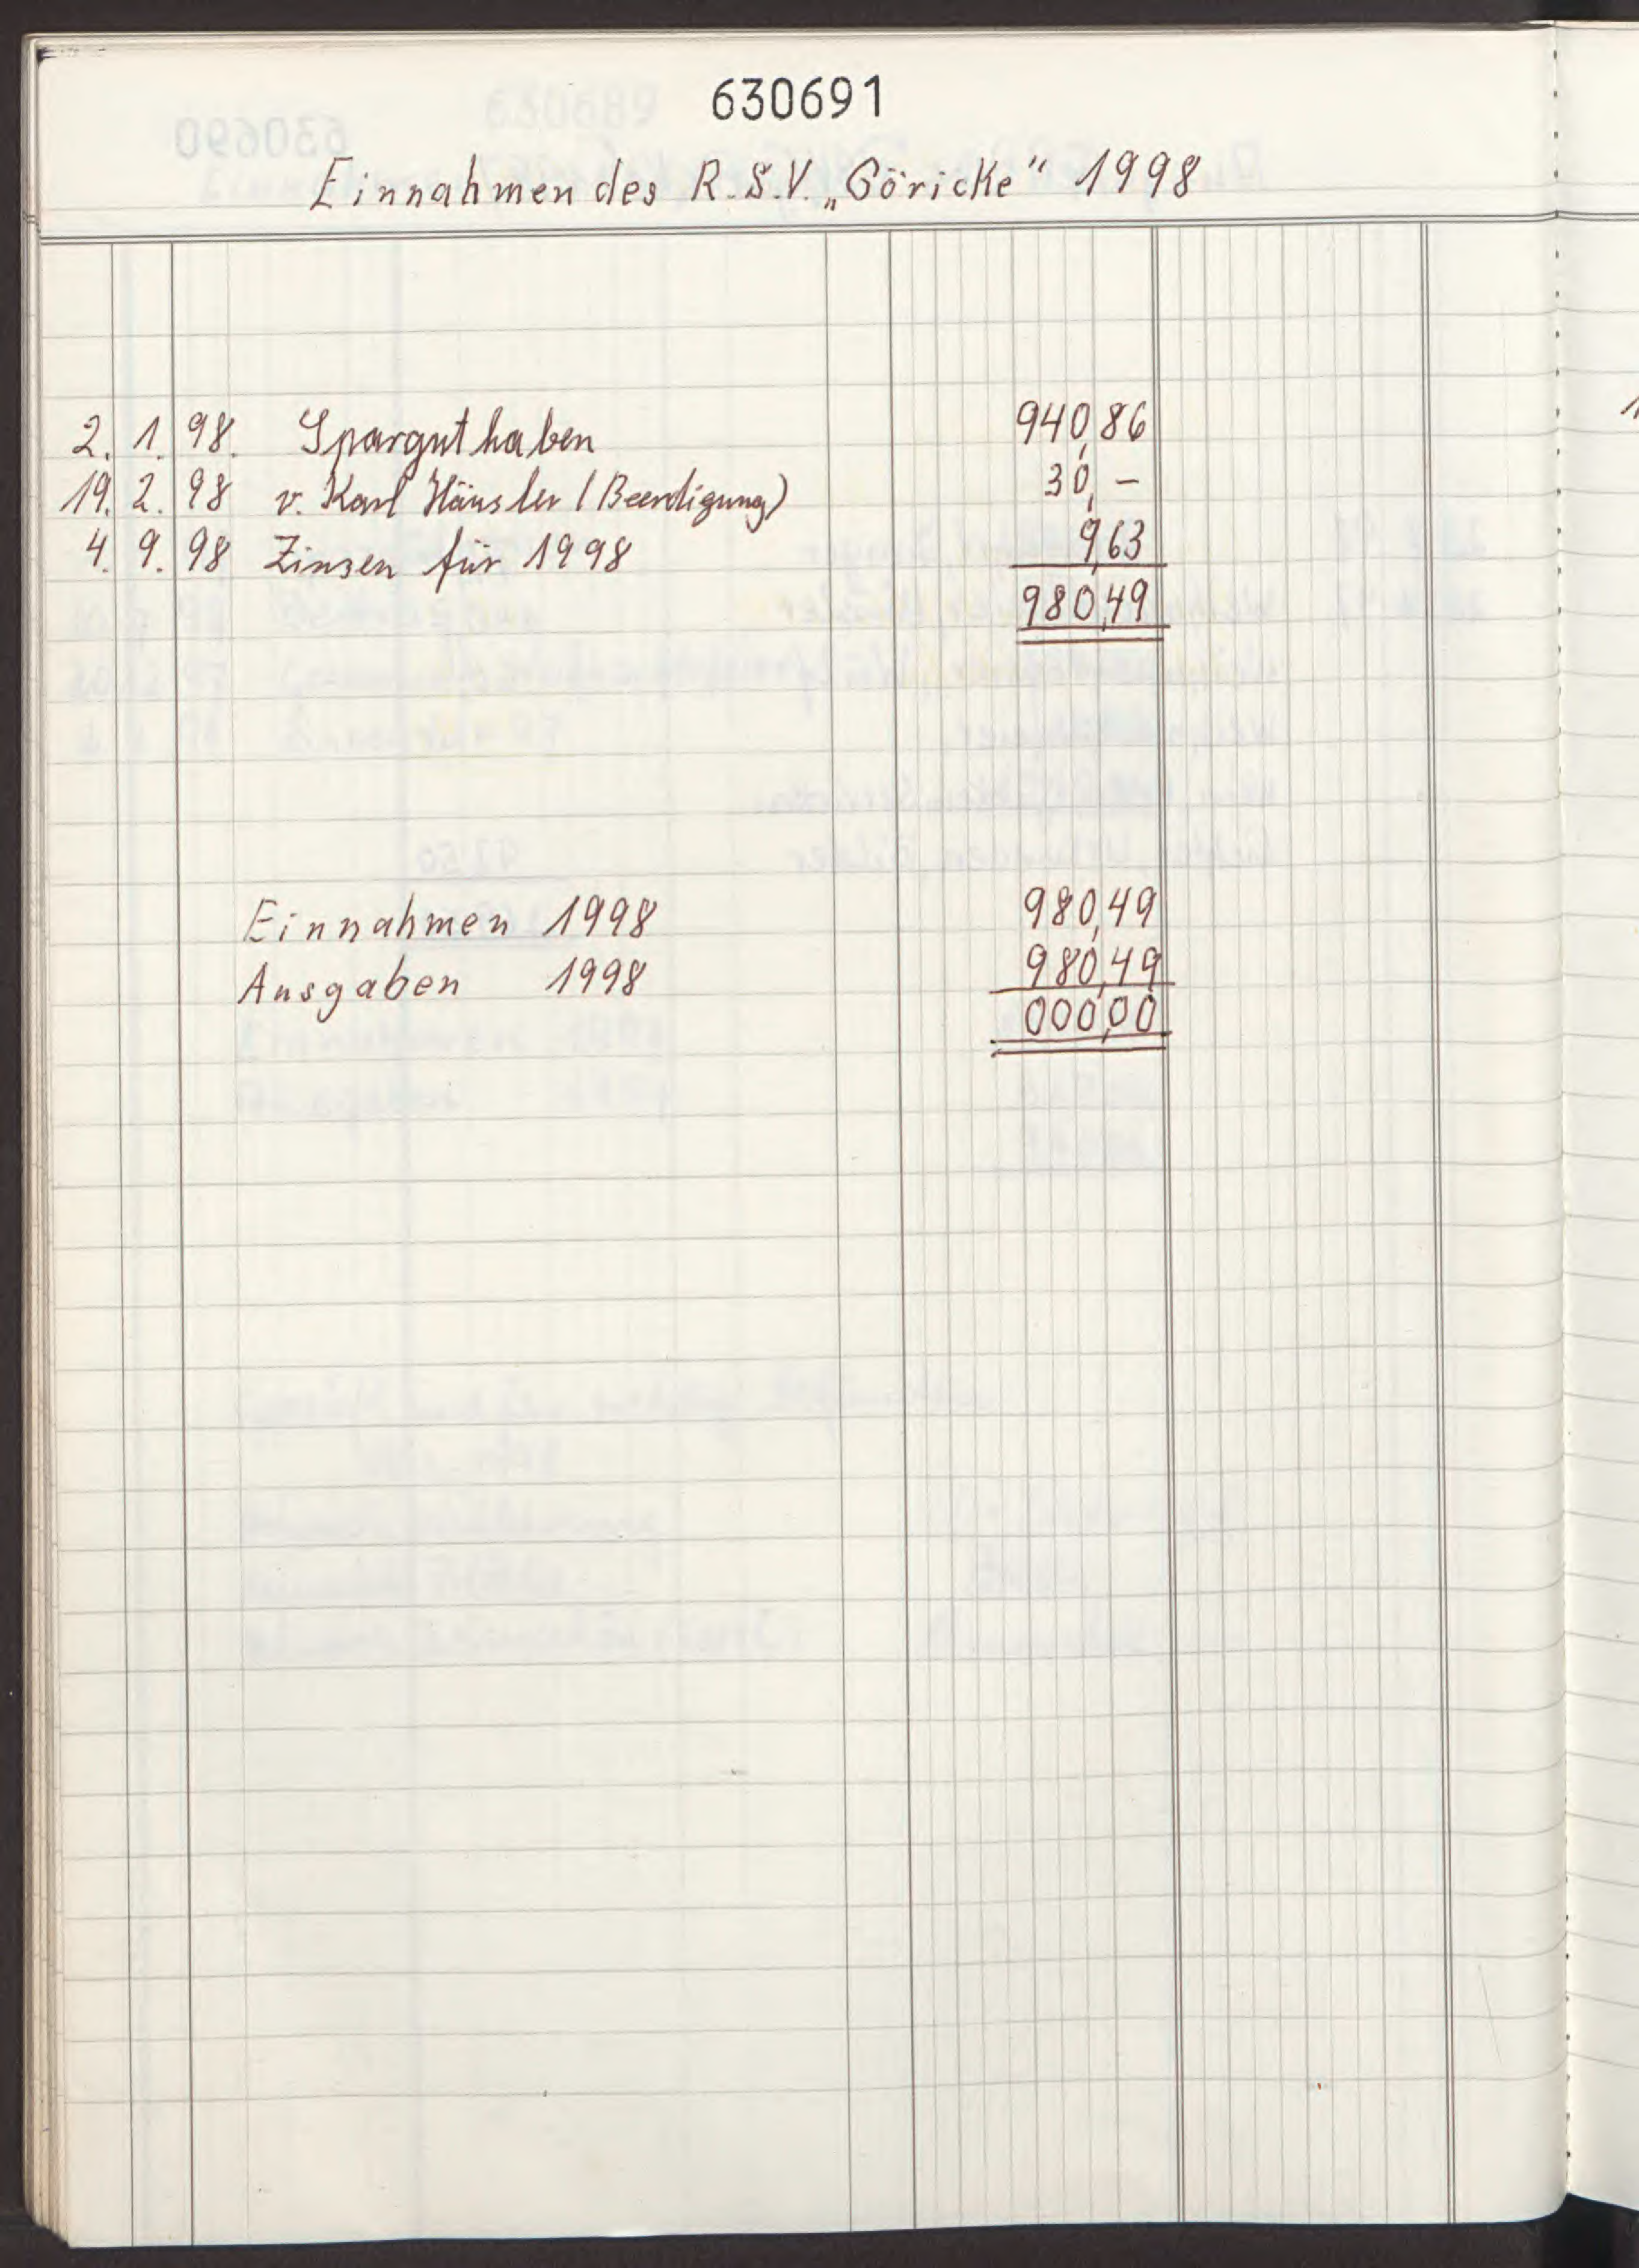 630691
Einnahmen des R.S.V. „Göricke“ 1998
2. 1. 98. Sparguthaben 940,86
19. 2. 98 v. Karl Häusler (Beerdigung) 30,-
4. 9. 98 Zinsen für 1998 9,63
980,49
Einnahmen 1998 980,49
Ausgaben 1998 980,49
000,00